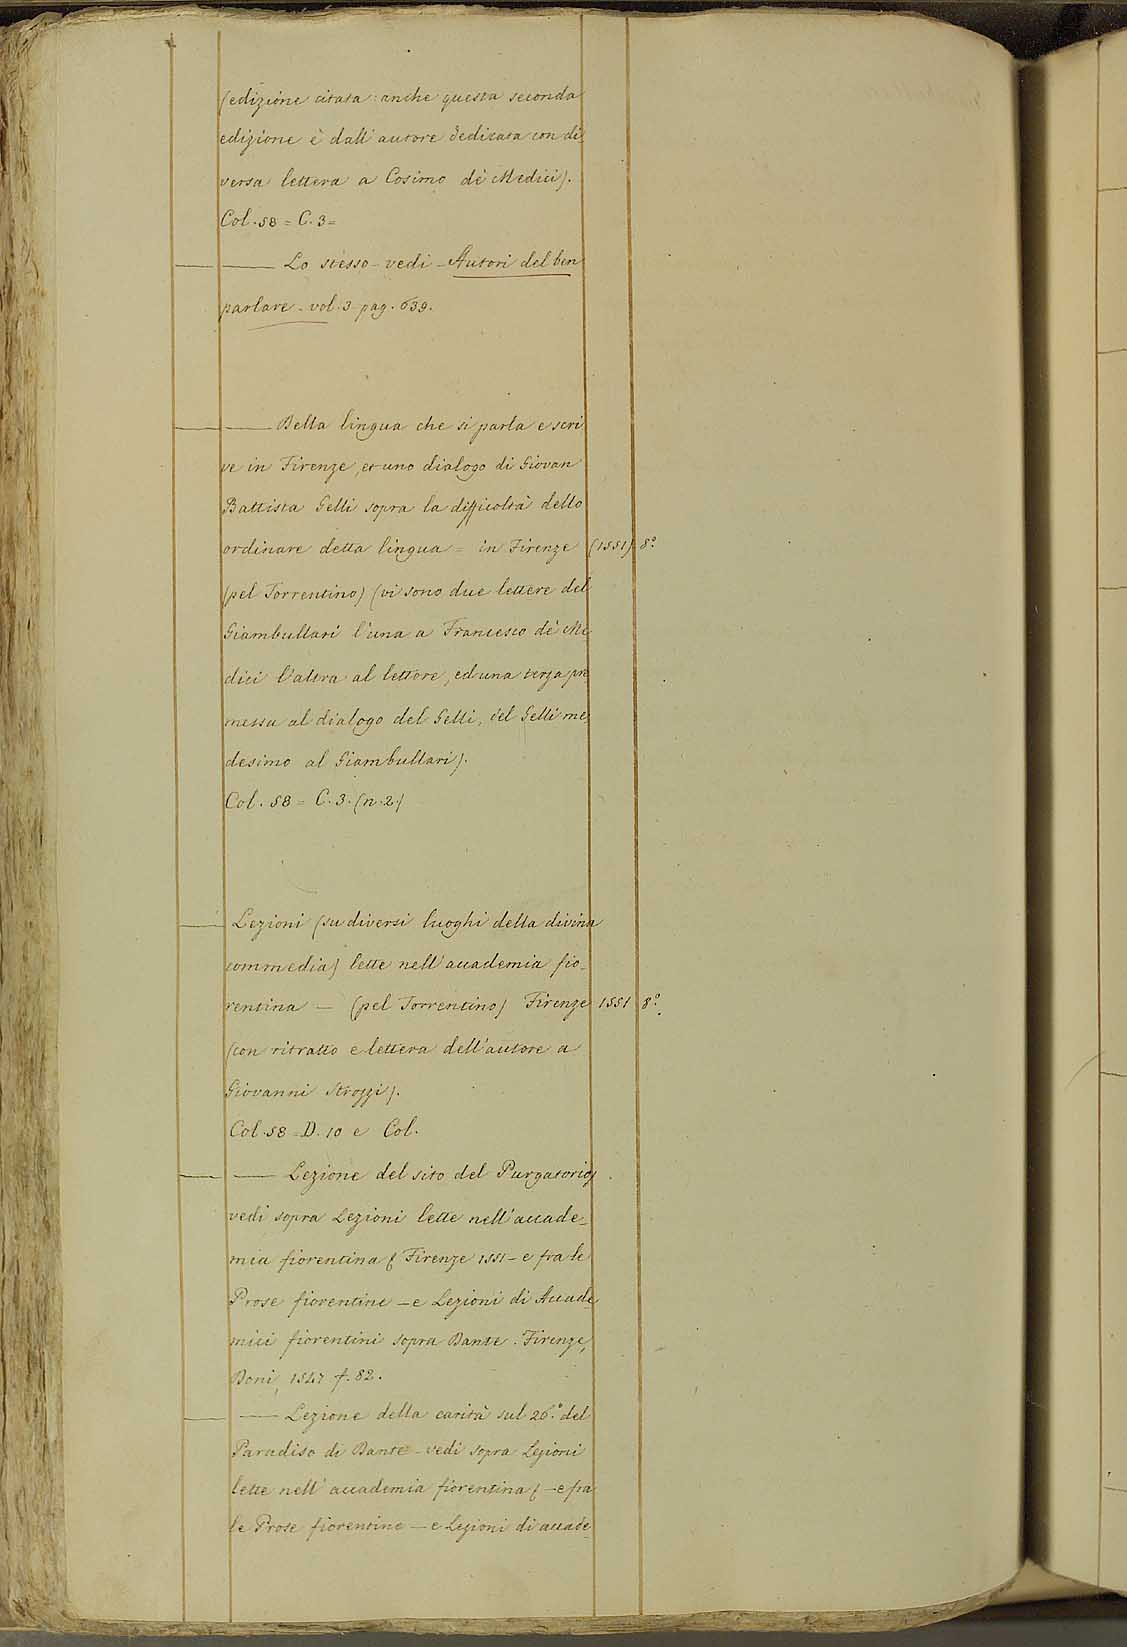 (edizione citata: anche questa seconda
edizione è dall'autore dedicata con di
versa lettera a Cosimo de' Medici).
Col. 58 = C. 3 =
—— Lo stesso - vedi - Autori del ben
parlare - vol. 3 pag. 639.
—— Della lingua che si parla e scri
ve in Firenze, et uno dialogo di Giovan
Battista Gelli sopra la difficoltà dello
ordinare detta lingua = in Firenze (1551) 8.º
(pel Torrentino) (vi sono due lettere del
Giambullari l'una a Francesco de' Me
dici l'altra al lettore, ed una terza pre
messa al dialogo del Gelli, del Gelli me
desimo al Giambullari).
Col. 58 = C. 3. (n. 2.)
Lezioni (su diversi luoghi della divina
commedia) lette nell'accademia fio-
rentina — (pel Torrentino) Firenze 1551 8.º
(con ritratto e lettera dell'autore a
Giovanni Strozzi).
Col. 58 = D. 10 e Col.
—— Lezione del sito del Purgatorio
vedi sopra Lezioni lette nell'accade-
mia fiorentina ( Firenze 1551 - e fra le
Prose fiorentine — e Lezioni di Accade
mici fiorentini sopra Dante. Firenze,
Doni, 1547 f. 82.
—— Lezione della carità sul 26.º del
Paradiso di Dante - vedi sopra Lezioni
lette nell'accademia fiorentina ( — e fra
le Prose fiorentine — e Lezioni di accade-